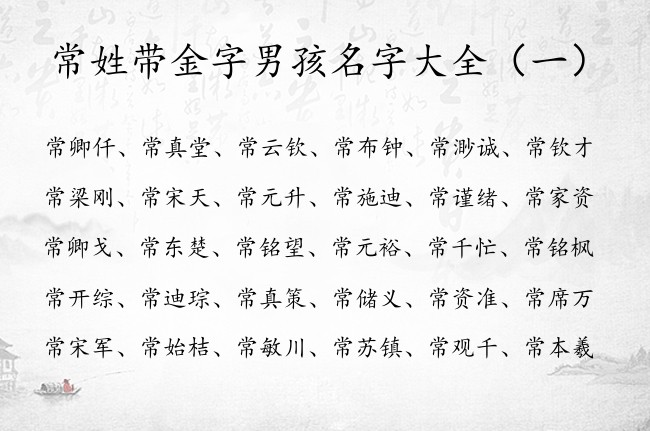 常姓带金字男孩名字大全（一）
常卿仟、常真堂、常云钦、常布钟、常渺诚、常钦才
常梁刚、常宋天、常元升、常施迪、常谨绪、常家资
常卿戈、常东楚、常铭望、常元裕、常千忙、常铭枫
常开综、常迪琮、常真策、常储义、常资准、常席万
常宋军、常始桔、常敏川、常苏镇、常观千、常本羲